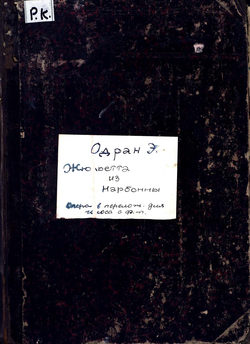 Р.К.
Одран Э.
Жюльетта
из
Нарбонны
Опера в перелож. для